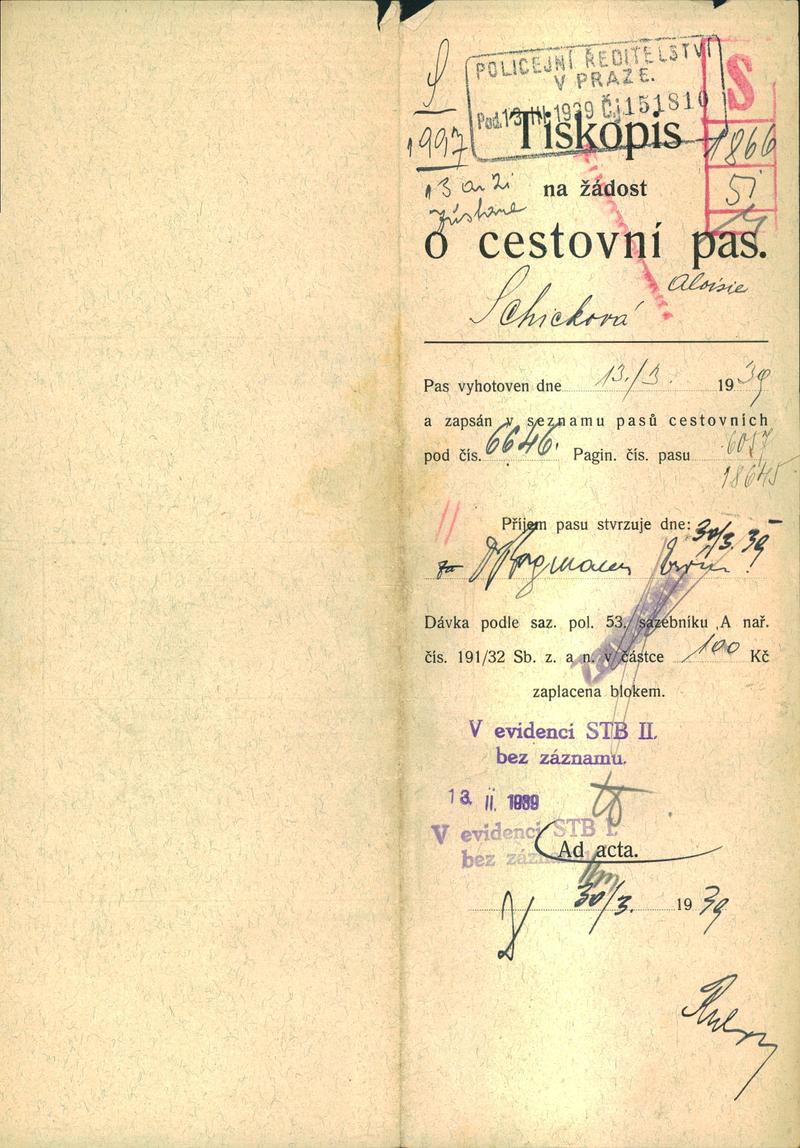 S
1997
POLICEJNÍ ŘEDITELSTVÍ
V PRAZE.
Pod. 13. III. 1939 Čj 151810
S
1866
51
Tiskopis
na žádost
o cestovní pas.
Aloisie
Schicková
Pas vyhotoven dne 13./3. 1939
a zapsán v seznamu pasů cestovních
pod čís. 6646. Pagin. čís. pasu
18645
Příjem pasu stvrzuje dne: 30/3. 39
Dávka podle saz. pol. 53, sazebníku A nař.
čís. 191/32 Sb. z. a n. v částce 100 Kč
zaplacena blokem.
V evidenci STB II.
bez záznamu.
13. II. 1939
V evidenci STB I.
bez záznamu
Ad acta.
30/3. 1939